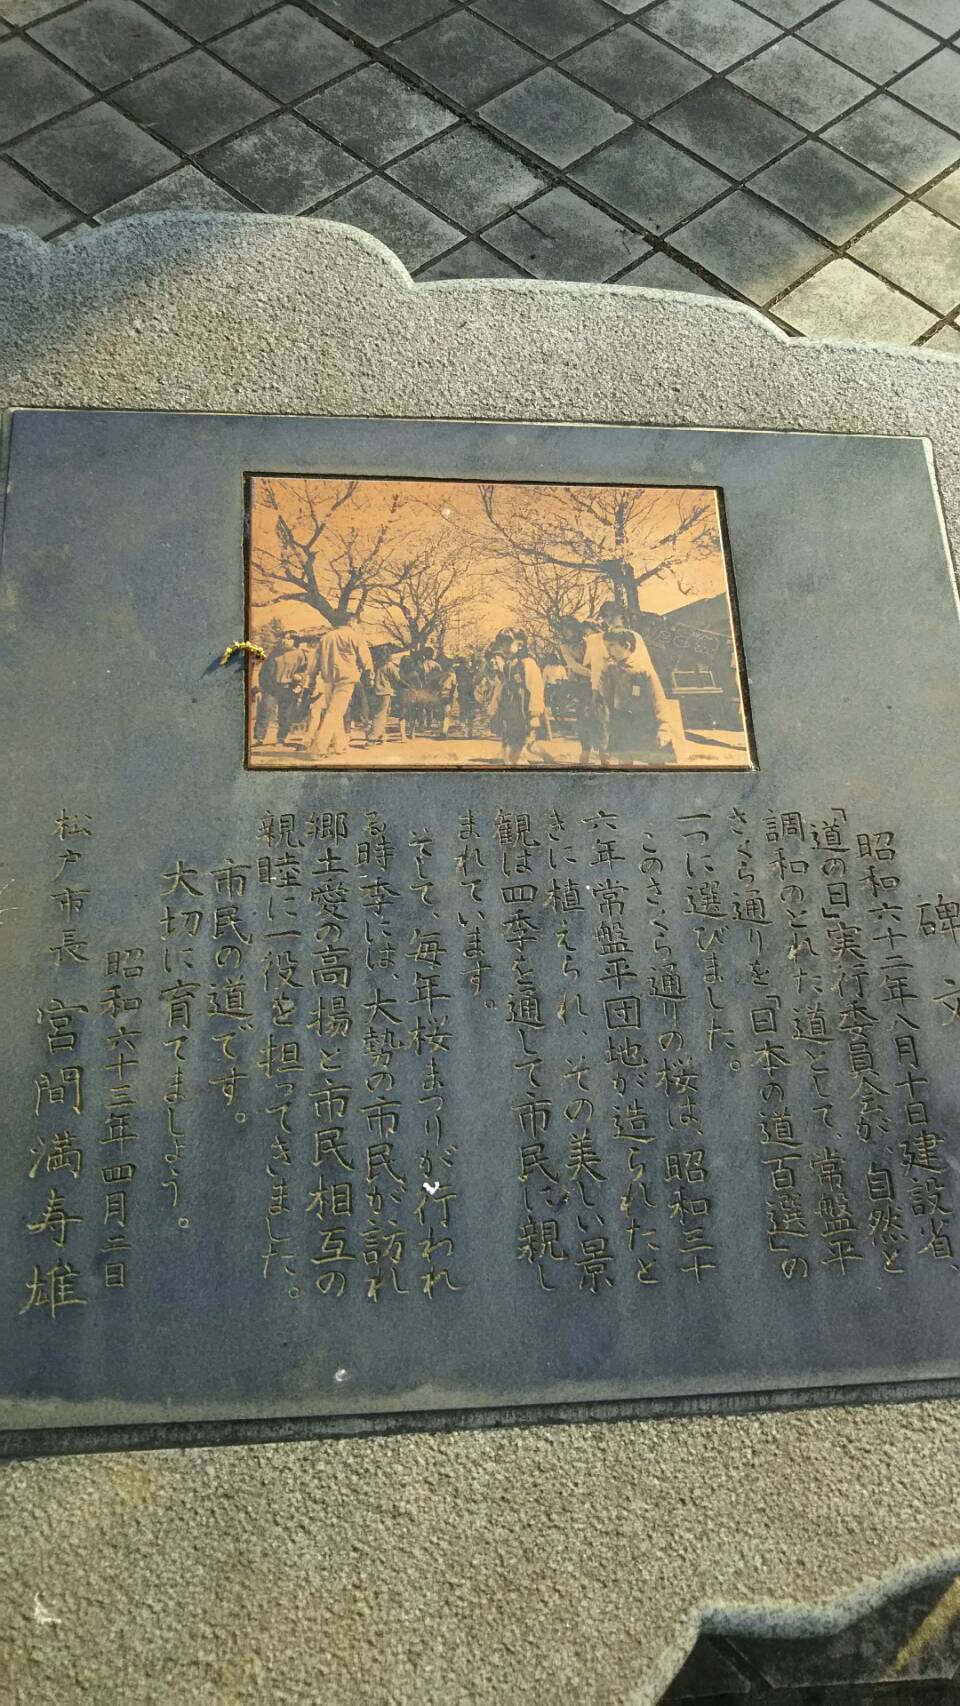 碑文
昭和六十二年八月十日建設省、
「道の日」実行委員会が、自然と
調和のとれた道として、常盤平
さくら通りを「日本の道百選」の
一つに選びました。
このさくら通りの桜は、昭和三十
六年常盤平団地が造られたと
きに植えられ、その美しい景
観は四季を通して市民に親し
まれています。
そして、毎年桜まつりが行われ
る時季には、大勢の市民が訪れ
郷土愛の高揚と市民相互の
親睦に一役を担ってきました。
市民の道です。
大切に育てましょう。
昭和六十三年四月二日
松戸市長 宮間満寿雄